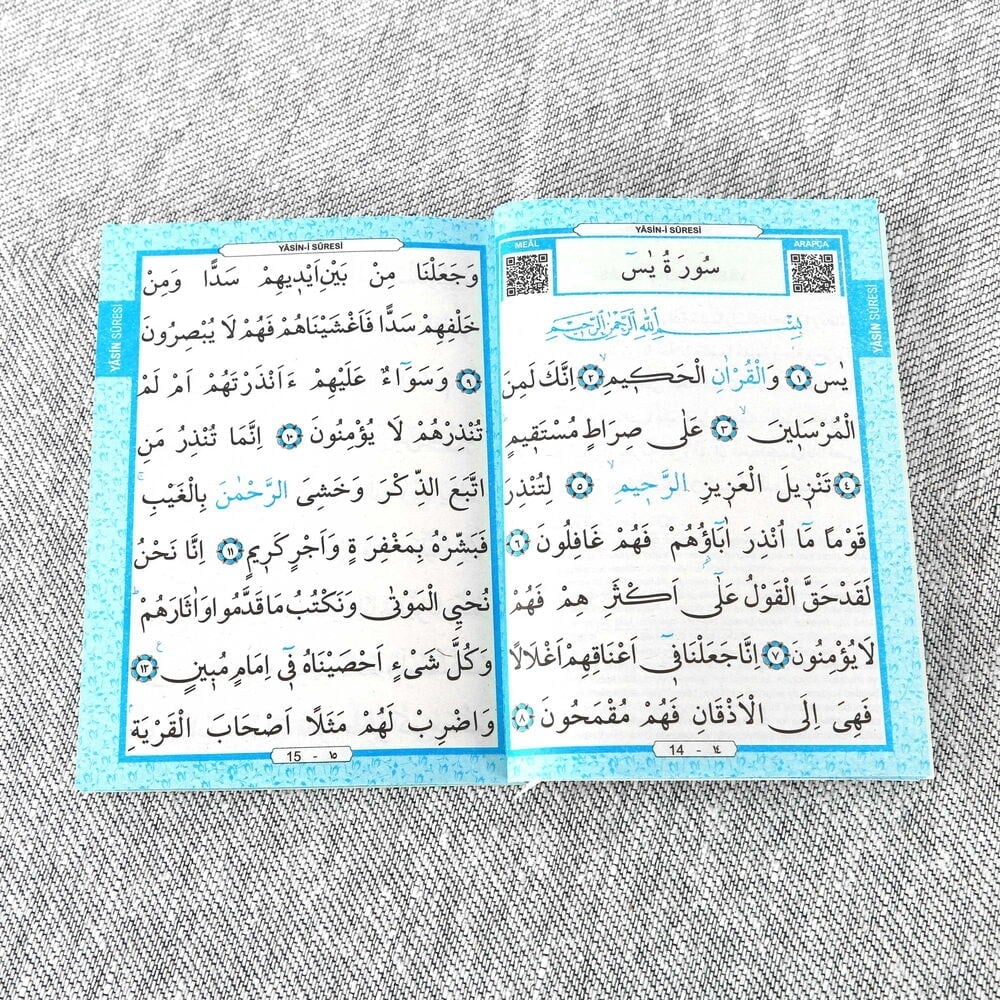 YÂSİN-İ SÛRESİ
MEÂL
ARAPÇA
سُورَةُ يٰسٓ
بِسْمِ اللّٰهِ الرَّحْمٰنِ الرَّحِيمِ
يٰسٓ ﴿١﴾ وَالْقُرْاٰنِ الْحَكِيمِۙ ﴿٢﴾ اِنَّكَ لَمِنَ
الْمُرْسَلِينَۙ ﴿٣﴾ عَلٰى صِرَاطٍ مُسْتَقِيمٍ
﴿٤﴾ تَنْزِيلَ الْعَزِيزِ الرَّحِيمِۙ ﴿٥﴾ لِتُنْذِرَ
قَوْمًا مَٓا اُنْذِرَ اٰبَٓاؤُ۬هُمْ فَهُمْ غَافِلُونَ ﴿٦﴾
لَقَدْ حَقَّ الْقَوْلُ عَلٰٓى اَكْثَرِ هِمْ فَهُمْ
لَا يُؤْمِنُونَ ﴿٧﴾ اِنَّا جَعَلْنَا فِٓي اَعْنَاقِهِمْ اَغْلَالًا
فَهِيَ اِلَى الْاَذْقَانِ فَهُمْ مُقْمَحُونَ ﴿٨﴾
14 - ١٤
YÂSİN SÛRESİ
YÂSİN-İ SÛRESİ
وَجَعَلْنَا مِنْ بَيْنِ اَيْدِيهِمْ سَدًّا وَمِنْ
خَلْفِهِمْ سَدًّا فَاَغْشَيْنَاهُمْ فَهُمْ لَا يُبْصِرُونَ
﴿٩﴾ وَسَوَٓاءٌ عَلَيْهِمْ ءَاَنْذَرْتَهُمْ اَمْ لَمْ
تُنْذِرْهُمْ لَا يُؤْمِنُونَ ﴿١٠﴾ اِنَّمَا تُنْذِرُ مَنِ
اتَّبَعَ الذِّكْرَ وَخَشِيَ الرَّحْمٰنَ بِالْغَيْبِۚ
فَبَشِّرْهُ بِمَغْفِرَةٍ وَاَجْرٍ كَرِيمٍ ﴿١١﴾ اِنَّا نَحْنُ
نُحْيِ الْمَوْتٰى وَنَكْتُبُ مَا قَدَّمُوا وَاٰثَارَهُمْۜ
وَكُلَّ شَيْءٍ اَحْصَيْنَاهُ فِٓي اِمَامٍ مُبِينٍ۟ ﴿١٢﴾
وَاضْرِبْ لَهُمْ مَثَلًا اَصْحَابَ الْقَرْيَةِۢ
15 - ١٥
YÂSİN SÛRESİ